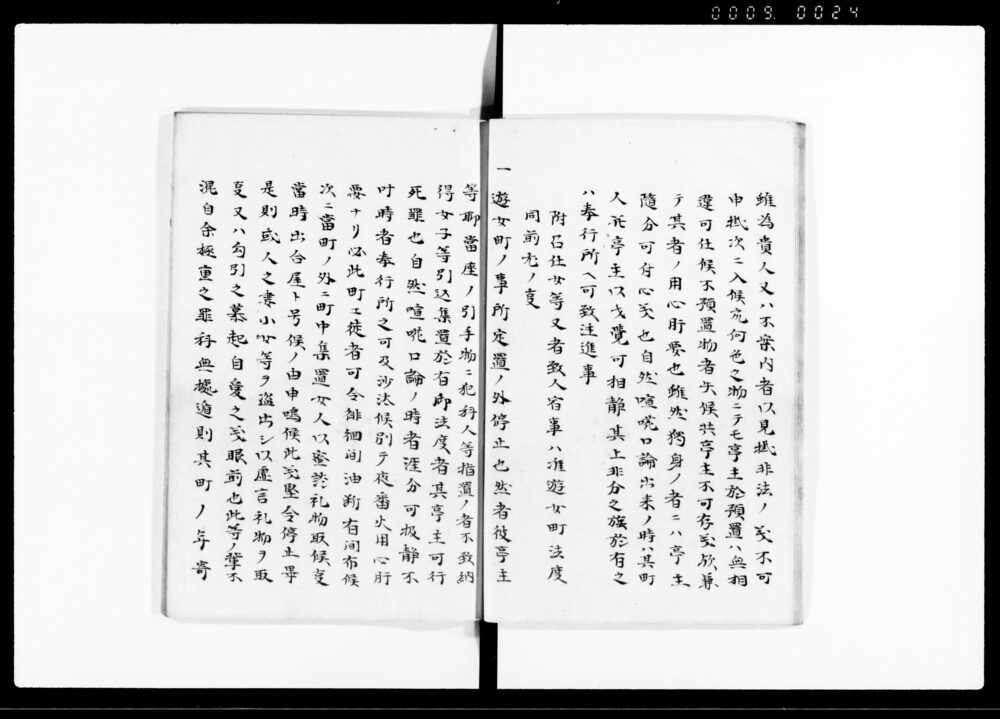 0009. 0024
雖為貴人又ハ不案内者以見掠非法ノ義不可
申掠次ニ入候宛何色之物ニテモ亭主於預置ハ無相
違可仕候不預置物者失候共亭主不可存義欤兼
テ其者ノ用心肝要也雖然独身ノ者ニハ亭主
随分可付心義也自然喧𠵅口論出来ノ時ハ其町
人託亭主以才覚可相静其上非分之族於有之
ハ奉行所ヘ可致注進事
附召仕女等又者致人宿事ハ准遊女町法度
同前也ノ夏
一遊女町ノ事所定置ノ外停止也然者彼亭主
等聊當座ノ引手物ニ犯科人等指置ノ者不致納
得女子等引込集置於有即法度者其亭主可行
死罪也自然喧𠵅口論ノ時者涯分可扱静不
叶時者奉行所之可及沙汰候別テ夜番火用心肝
要ナリ必此町エ徒者可令徘徊间油断有间布候
次ニ當町ノ外ニ町中集置女人以蜜談礼物取候夏
當時出合屋ト号候ノ由申鳴候此義堅令停止畢
是則或人之妻小女等ヲ盗出シ以虚言礼物ヲ取
夏又ハ勾引之慕起自夏之義眼前也此等ノ輩不
混自余極重之罪科無據遁則其町ノ年寄